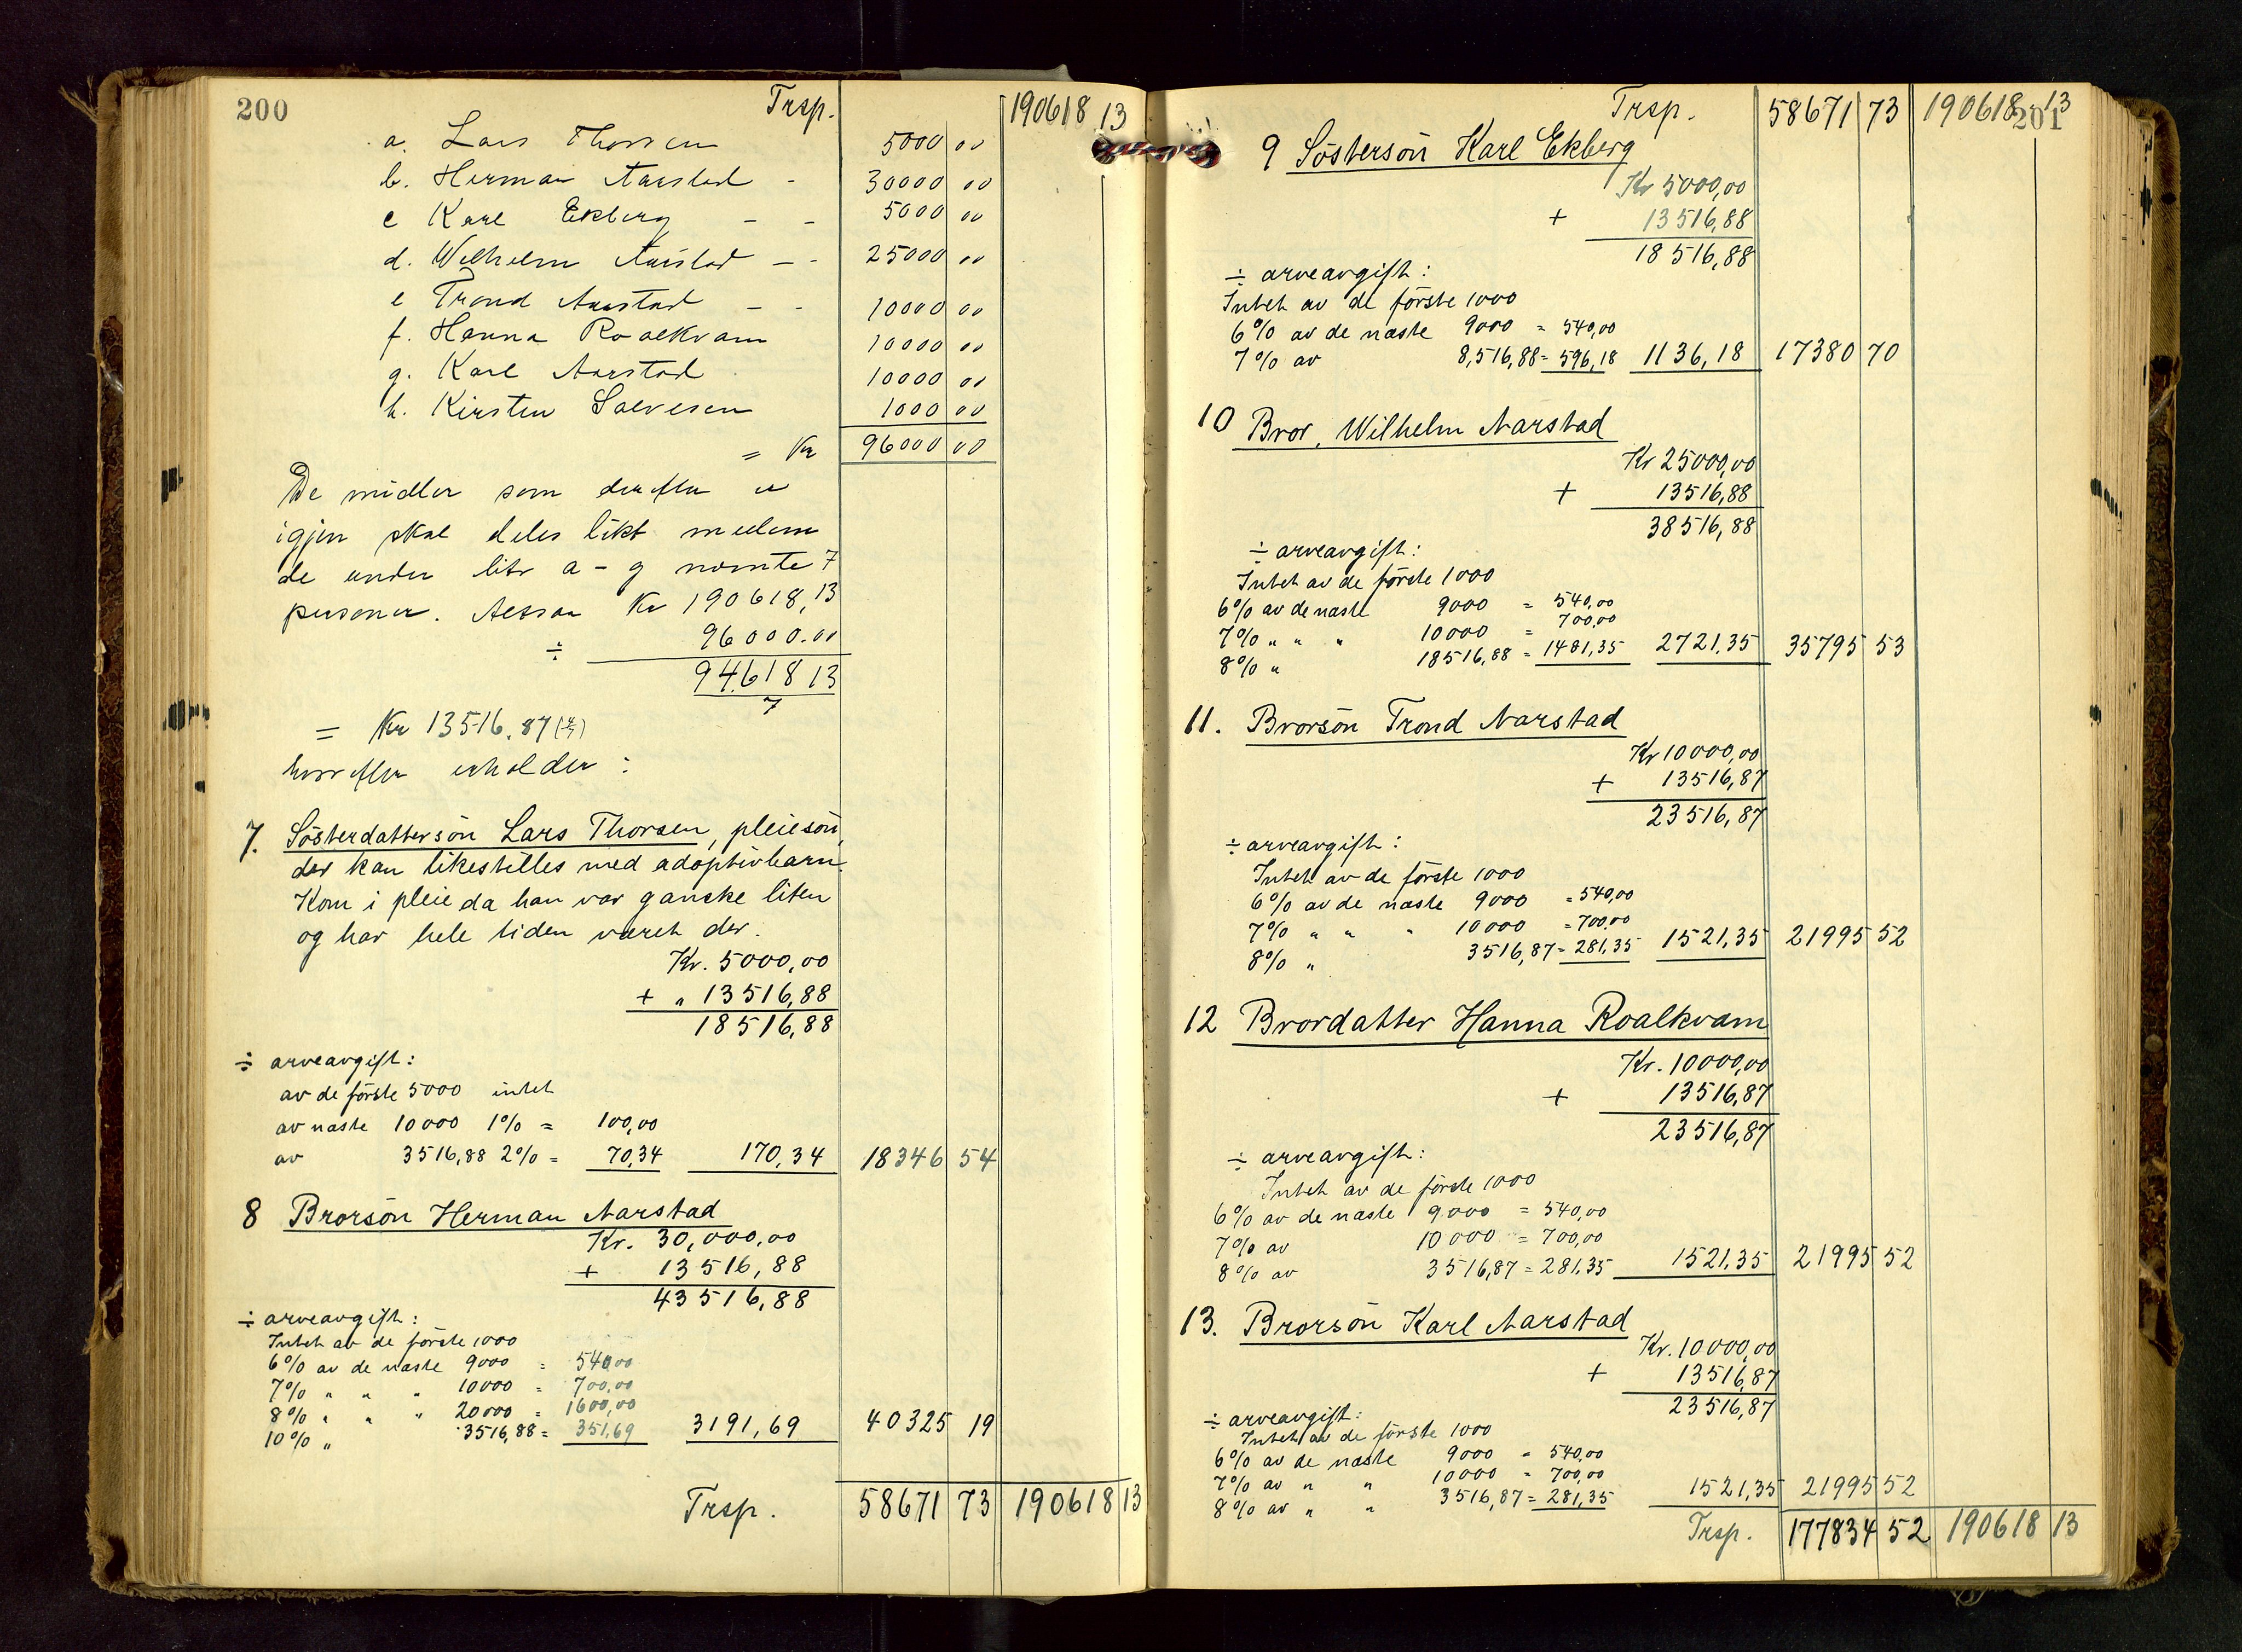 200 Trsp. 190618 13
a. Lars Thorsen 5000 00
b. Herman Aarstad - 30000 00
c Karl Ekberg - - 5000 00
d. Wilhelm Aarstad - - 25000 00
e Trond Aarstad - - 10000 00
f. Hanna Roalkvam 10000 00
g. Karl Aarstad 10000 00
h. Kirsten Salvesen 1000 00
= Kr 96000 00
De midler som derefter er
igjen skal deles likt mellem
de under litr a - g nævnte 7
personer. Altsaa Kr 190618,13
÷ 96000.00
94618 13
7
= Kr 13516.87 (4/7)
hvorefter erholder :
7. Sösterdattersön Lars Thorsen, pleiesön,
der kan likestilles med adoptivbarn.
Kom i pleie da han var ganske liten
og har hele tiden været der.
Kr. 5000,00
+ " 13516,88
18516,88
÷ arveavgift:
av de förste 5000 intet
av næste 10000 1% = 100,00
av 3516,88 2% = 70,34 170,34 18346 54
8 Brorsön Herman Aarstad
Kr. 30,000,00
+ 13516,88
43516,88
÷ arveavgift:
Intet av de förste 1000
6% av de næste 9000 = 540,00
7% " " " 10000 = 700,00
8% " " " 20000 = 1600,00
10% " 3516,88 = 351,69 3191,69 40325 19
Trsp. 58671 73 190618 13
Trsp. 58671 73 190618 13
201
9 Söstersön Karl Ekberg
Kr 5000,00
+ 13516,88
18516,88
÷ arveavgift:
Intet av de förste 1000
6% av de næste 9000 = 540,00
7% av 8,516,88 = 596,18 1136,18 17380 70
10 Bror, Wilhelm Aarstad
Kr 25000,00
+ 13516,88
38516,88
÷ arveavgift:
Intet av de förste 1000
6% av de næste 9000 = 540,00
7% " " " 10000 = 700,00
8% " 18516,88 = 1481,35 2721,35 35795 53
11. Brorsön Trond Aarstad
Kr 10000,00
+ 13516,87
23516,87
÷ arveavgift:
Intet av de förste 1000
6% av de næste 9000 = 540,00
7% " " " 10000 = 700,00
8% " 3516,87 = 281,35 1521,35 21995 52
12 Brordatter Hanna Roalkvam
Kr. 10000,00
+ 13516,87
23516,87
÷ arveavgift:
Intet av de förste 1000
6% av de næste 9000 = 540,00
7% av 10000 = 700,00
8% av 3516,87 = 281,35 1521,35 21995 52
13. Brorsön Karl Aarstad
Kr. 10000,00
+ 13516,87
23516,87
÷ arveavgift:
Intet av de förste 1000
6% av de næste 9000 = 540,00
7% av " " 10000 = 700,00
8% av " " 3516,87 = 281,35 1521,35 21995 52
Trsp. 177834 52 190618 13